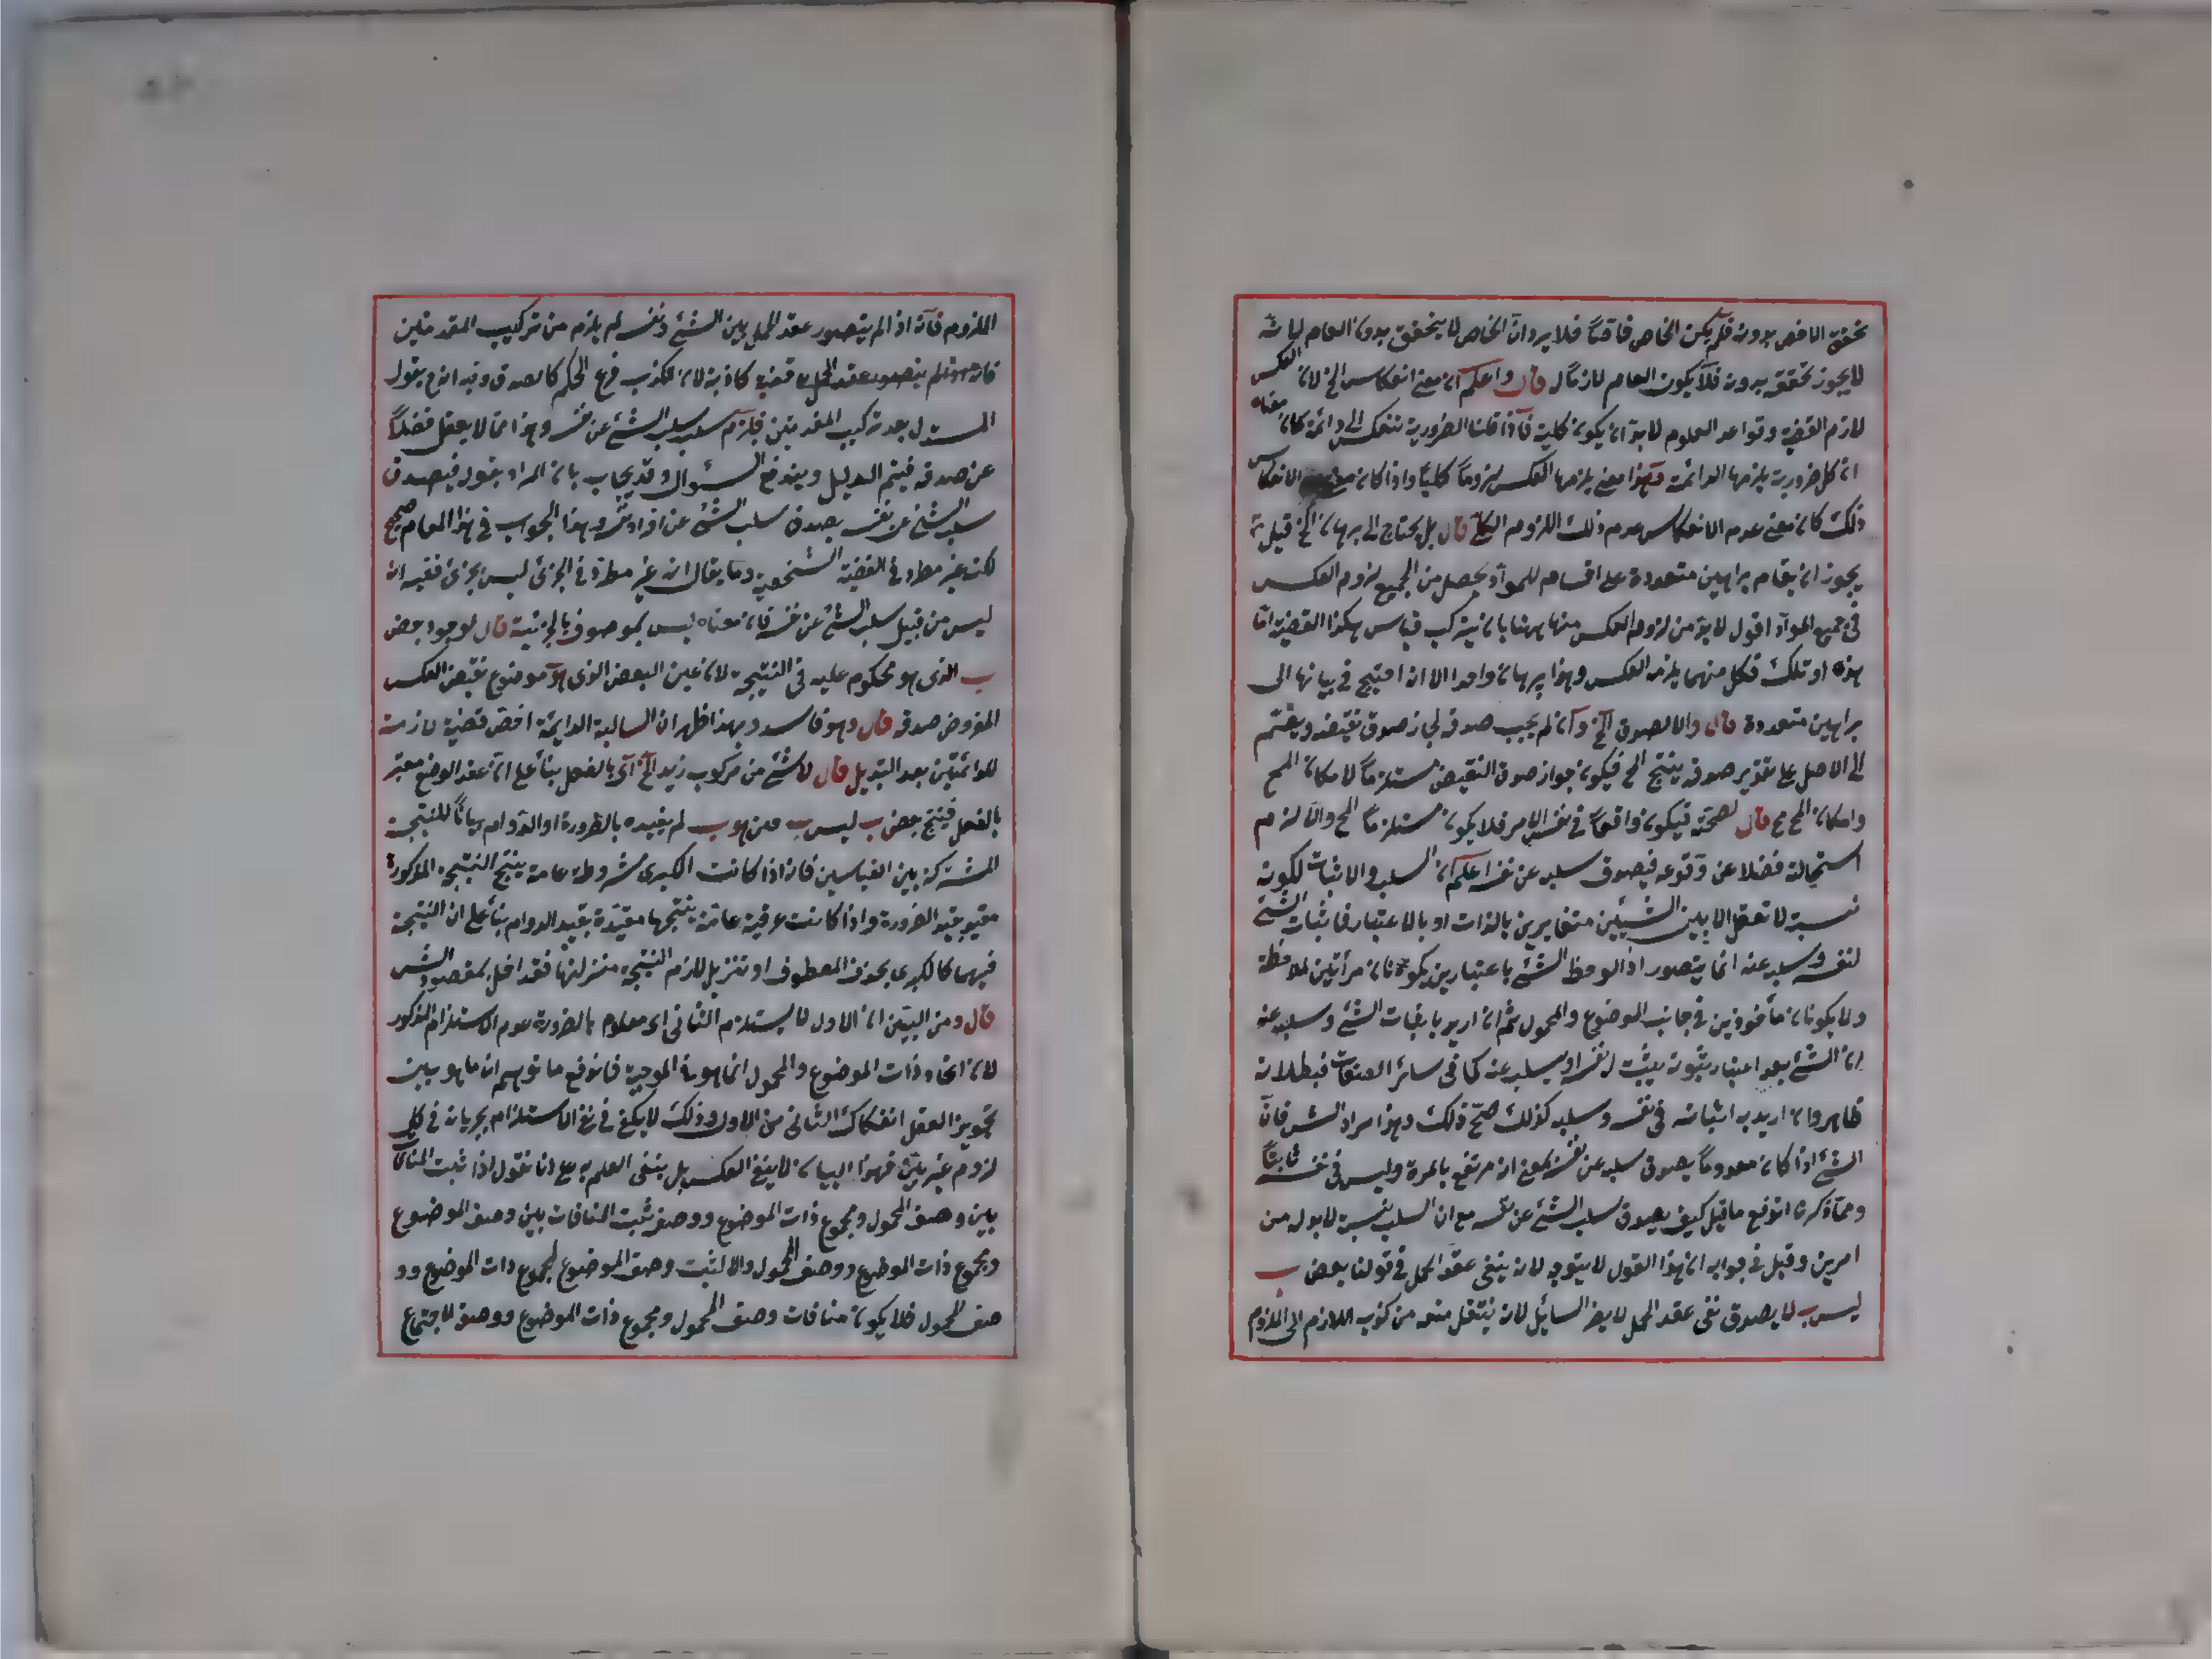 تحقق الاخص بدونه فلم يكن الخاص خاصّاً فلا يرد انّ الخاص لا يتحقق بدون العام
لا يجوز تحققه بدونه فلا يكون العام لازماً له قال واعلم ان معنى انعكاس الخ لان العكس
لازم القضية وقواعد العلوم لا بد ان يكون كلية فاذا قلنا الضرورية تنعكس الى دائمة كان معناه
ان كل ضرورية يلزمها الدائمة وهذا معنى يلزمها العكس لزوماً كلياً واذا كان معنى الانعكاس
ذلك كان معنى عدم الانعكاس عدم ذلك اللزوم الكلي قال بل يحتاج الى برهان الخ قيل
يجوز ان يقام براهين متعددة على اقسام للمواد يحصل من الجميع لزوم العكس
في جميع المواد اقول لا بد من لزوم العكس منها ههنا بان يتركب قياس هكذا القضية اما
هذه او تلك فكل منهما يلزمه العكس وهذا برهان واحد الا انه احتيج في بيانها الى
براهين متعددة قال والا لصدق الخ وان لم يجب صدقه لجاز صدق نقيضه وينضم
الى الاصل على تقدير صدقه ينتج المح فيكون جواز صدق النقيض مستلزماً لامكان المح
وامكان المح مح قال لصحته فيكون واقعاً في نفس الامر فلا يكون مستلزماً المح والا لزم
استحالته فضلا عن وقوعه فيصدق سلبه عن نفسه اعلم ان السلب والاثبات لكونه
نسبة لا تعقل الا بين الشيئين متغايرين بالذات او بالاعتبار فاثبات الشئ
لنفسه وسلبه عنه انما يتصور اذا لوحظ الشئ باعتبارين يكونان مرأتين لملاحظة
ولا يكونان مأخوذين في جانب الموضوع والمحمول ثم ان اريد باثبات الشئ وسلبه عنه
ان الشئ بعد اعتبار ثبوته يثبت لنفسه او يسلب عنه كما في سائر الصفات فبطلانه
ظاهر وان اريد به اثباته في نفسه وسلبه كذلك صحّ ذلك وهذا مراد الش فانّ
الشئ اذا كان معدوماً يصدق سلبه عن نفسه بمعنى انه مرتفع بالمرة وليس في نفسه ثابتاً
ومما ذكرنا اندفع ما قيل كيف يصدق سلب الشئ عن نفسه مع ان السلب نسبة لا بد له من
امرين وقيل في جوابه ان هذا القول لا يتوجه لانه ينفى عقد الحمل في قولنا بعض ب
ليس ب لا يصدق نفى عقد الحمل لا يضر السائل لانه ينتقل منه من كذب اللازم الى الملزوم
الملزوم فانه اذا لم يتصور عقد الحمل بين الشئ ونفسه لم يلزم من تركيب المقدمتين
لم يتصور عقد الحمل قضية كاذبة لان الكذب فرع الحكم كالصدق وفيه انه يقول
المستدل بعد تركيب المقدمتين فيلزم سلب الشئ عن نفسه وهذا مما لا يعقل فضلاً
عن صدقه فيتم الدليل ويندفع السؤال وقد يجاب بان المراد بقوله فيصدق
سلب الشئ عن نفسه يصدق سلب الشئ عن افراد نفسه وهذا الجواب في هذا المقام صحيح
لكنه غير مطرد في القضية الشخصية وما يقال انه غير مطرد في الجزئى ليس بجزئى ففيه انه
ليس من قبيل سلب الشئ عن نفسه فان معناه ليس بموصوف بالجزئية قال لوجود بعض
ب الذى هو محكوم عليه في النتيجة لانه عين البعض الذى هو موضوع نقيض العكس
المفروض صدقه قال وهو فاسد وبهذا ظهر ان السالبة الدايمة اخص قضية لازمة
للدائمتين بعد التبديل قال لا شئ من مركوب زيد الخ اى بالفعل بناء على ان عقد الوضع معتبر
بالفعل فينتج بعض ب ليس ب حين هو ب لم يقيده بالضرورة او الدوام بياناً للنتيجة
المشتركة بين القياسين فانه اذا كانت الكبرى مشروطة عامة ينتج النتيجة المذكورة
مقيد بقيد الضرورة واذا كانت عرفية عامة ينتجها مقيّدة بقيد الدوام بناء على ان النتيجة
فيهما كالكبرى بحذف المعطوف او تنزيل لازم النتيجة منزلتها فقد اخل بمقصود الش
قال ومن البيّن ان الاول لا يستلزم الثانى اى معلوم بالضرورة عدم الاستلزام المذكور
لان اتحاد ذات الموضوع والمحمول انما هو في الموجبة فاندفع ما توهم ان ما هو بين
تجويز العقل انفكاك الثانى من الاول وذلك لا يكفى في نفى الاستلزام بجريانه في كل
لزوم غير بيّن فهذا البيان لا ينفى العكس بل ينفى العلم به على انا نقول اذا ثبت المنافاة
بين وصف المحمول ومجموع ذات الموضوع ووصفه ثبت المنافات بين وصف الموضوع
ومجموع ذات الموضوع ووصف المحمول والا لثبت وصف الموضوع لمجموع ذات الموضوع وو
صف المحمول فلا يكون منافات وصف المحمول ومجموع ذات الموضوع ووصفه لاجتماع